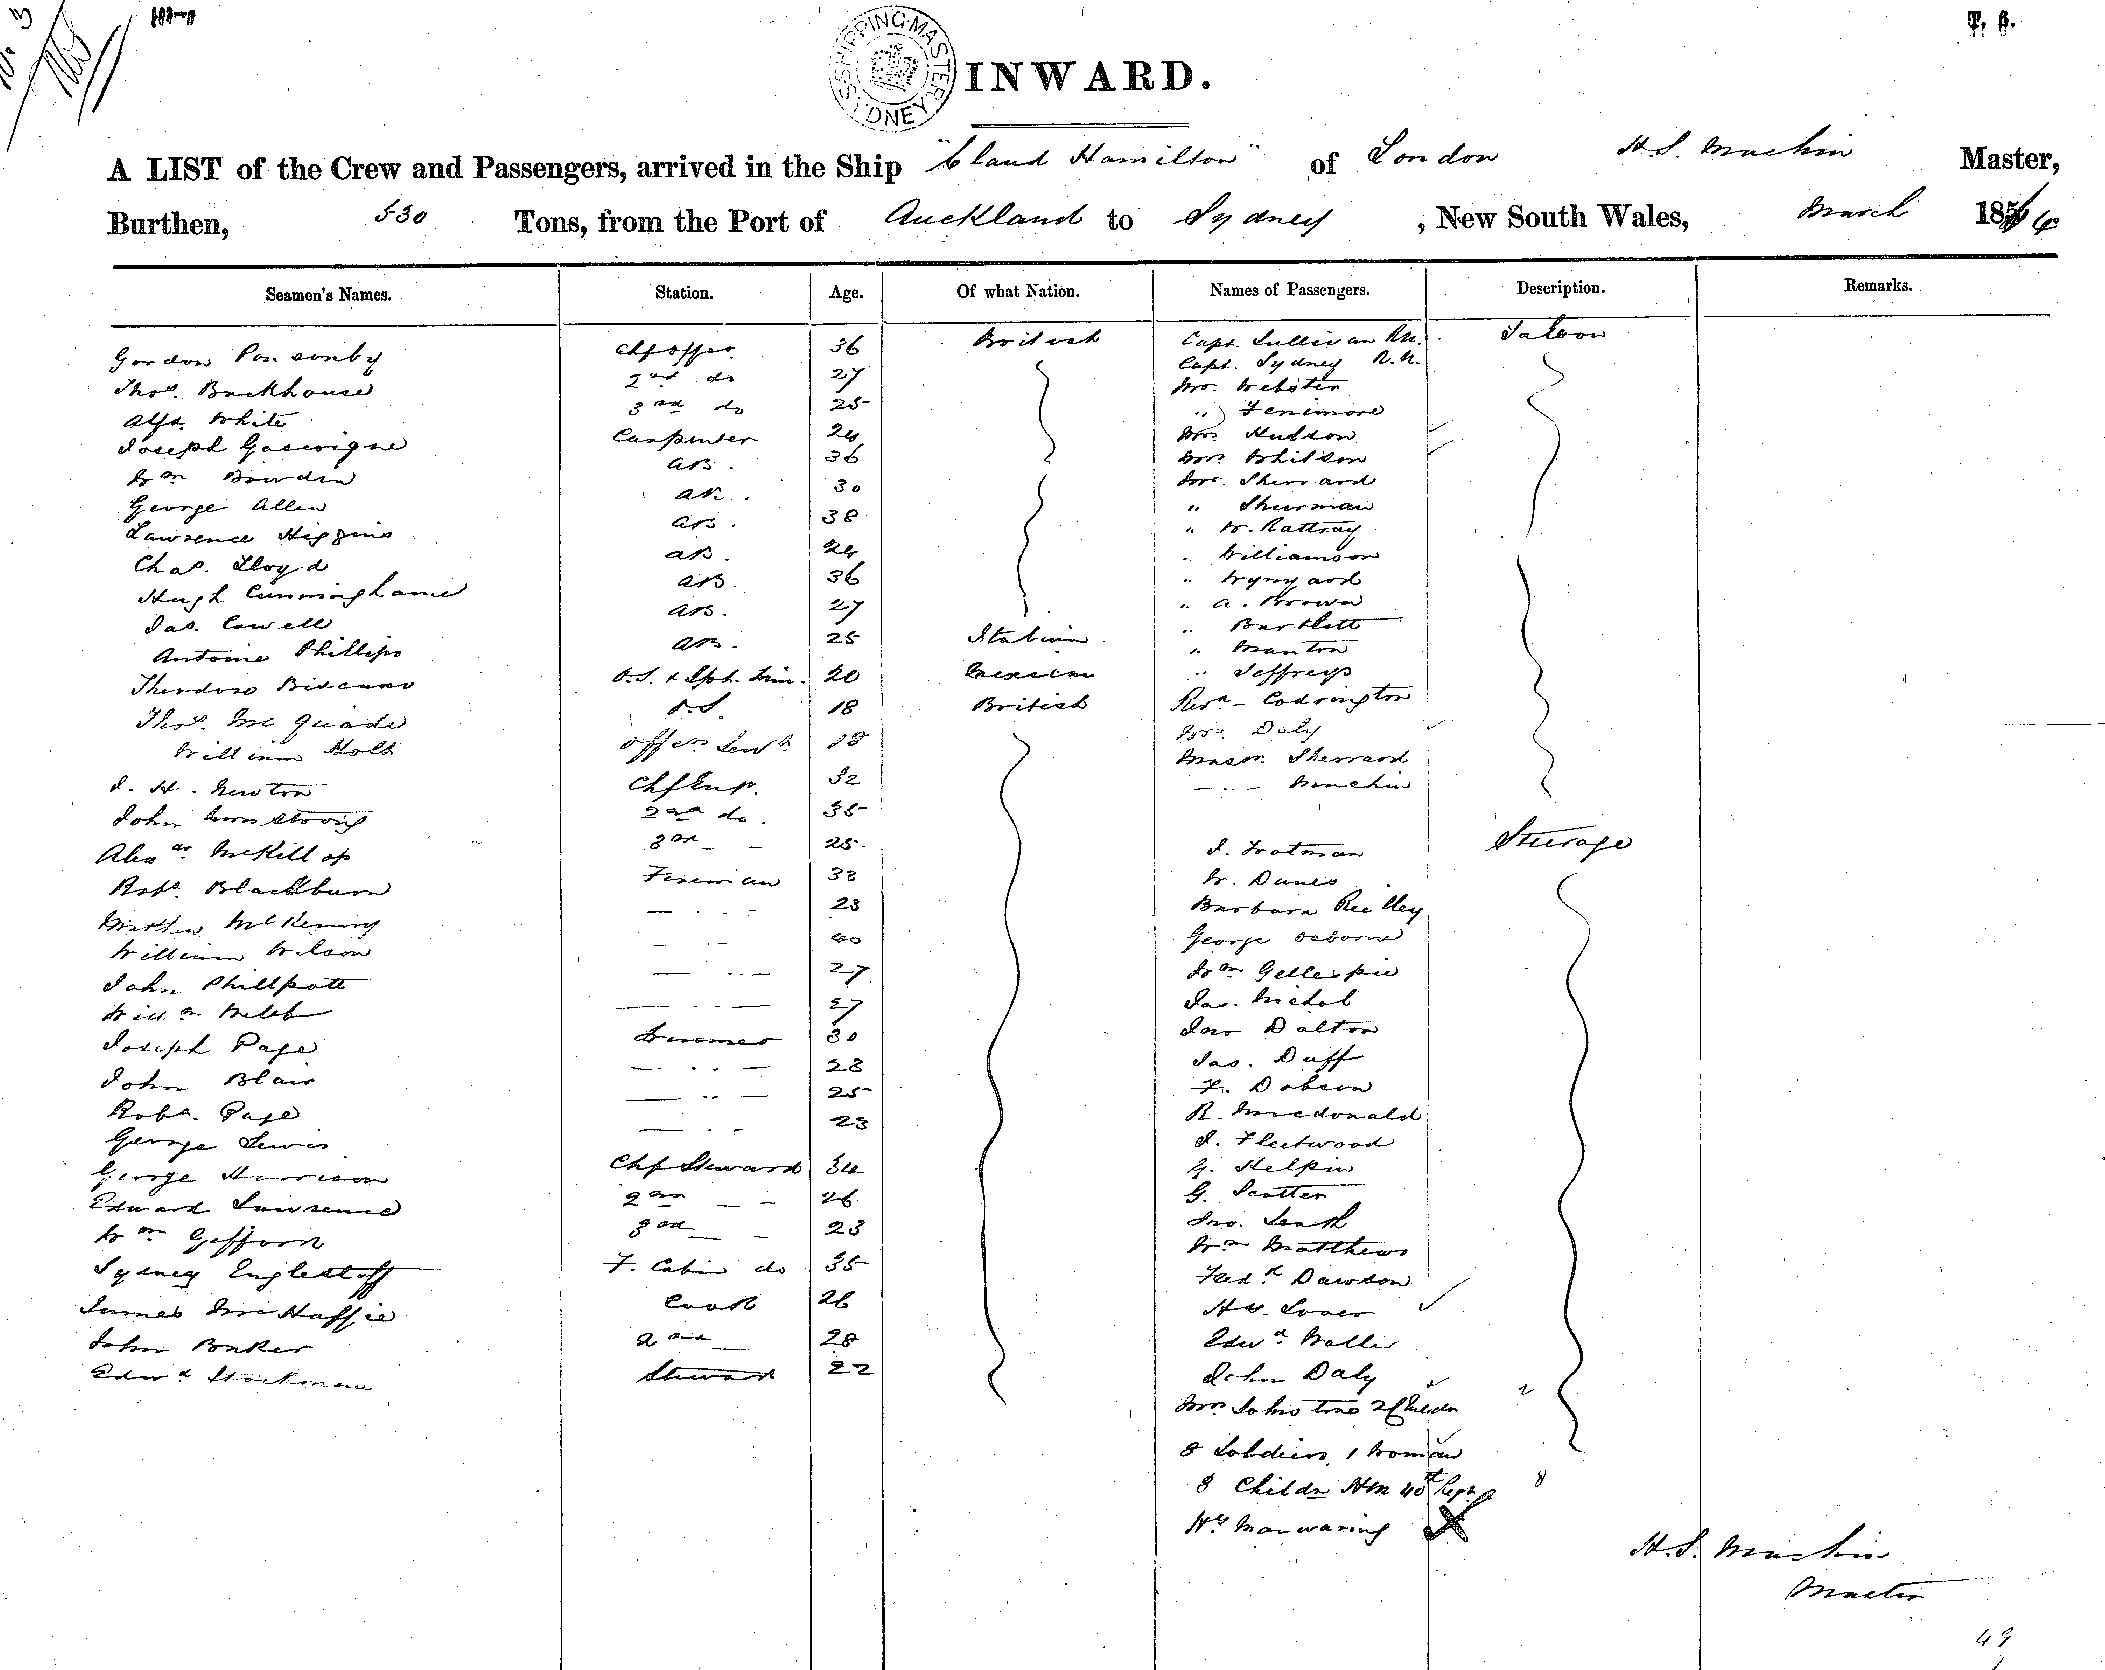 T. 6.
SHIPPING MASTER SYDNEY
INWARD.
A LIST of the Crew and Passengers, arrived in the Ship "Claud Hamilton" of London H. S. Machin Master,
Burthen, 530 Tons, from the Port of Auckland to Sydney, New South Wales, March 18
Seamen's Names. Station. Age. Of what Nation. Names of Passengers. Description. Remarks.
Gordon Ponsonby Chf offr 36 British Capt. Sullivan RN. Saloon
Capt. Sydney R.N.
Thos. Backhouse 2nd do 27 Mr. Webster
Alfd. White 3rd do 25 " Fenimore
Joseph Gascoigne Carpenter 24 Mrs Hudson
Wm Bowden AB. 36 Mrs Whilson
George Allen AB. 30 Mrs. Sherrard
Lawrence Higgins AB. 38 " Shurman
" W. Rattray
Chas. Lloyd AB. 24 " Williamson
Hugh Cunninghame AB. 36 " Wynyard
Jas. Cowell AB. 27 " A. Brown
" Bartlett
Antoine Phillips AB. 25 Italian " Manton
Theodoso O.S. & 20 Mexican " Jeffreys
Thos. McQuade O.S. 18 British Revd Codrington
William Holt Offrs Servt 18 Mrs. Daly
J. H. Newton Chf Engr. 32 Master Sherrard
" Machin
John Armstrong 2nd do. 35
Alexdr McKillop 3rd 25 J. Trotman Steurage
Robt. Blackburn Fireman 33 W. Danes
McKenny 23 Barbara Reilley
William Wilson 40 George Osborne
John Phillpott 27 Wm Gellespie
Willm Webb 27 Jas. Nichol
Joseph Page Trimmer 30 Jno Dalton
John Blair 28 Jas. Duff
Robt. Page 25 F. Dobson
George Lewis 23 R. Macdonald
J. Fleetwood
George Harrison Chf Steward 34 G. Kelpin
Edward Lawrence 2nd 26 G. Scotter
Wm Gifford 3rd 23 Jno. Leask
Wm Matthews
Sydney Englestoff F. Cabin do 35 Fredk Dawson
James McHaffie Cook 26 Hy. Lover
John Baker 2nd 28 Edwd Waller
Edwd Stockman Steward 22 John Daly
Mrs Johnstone 2 Childn 2
8 Soldiers, 1 Woman
8 Childn HM 40th Regt 8
Hy. Manwaring
H. S. Machin
Master
49